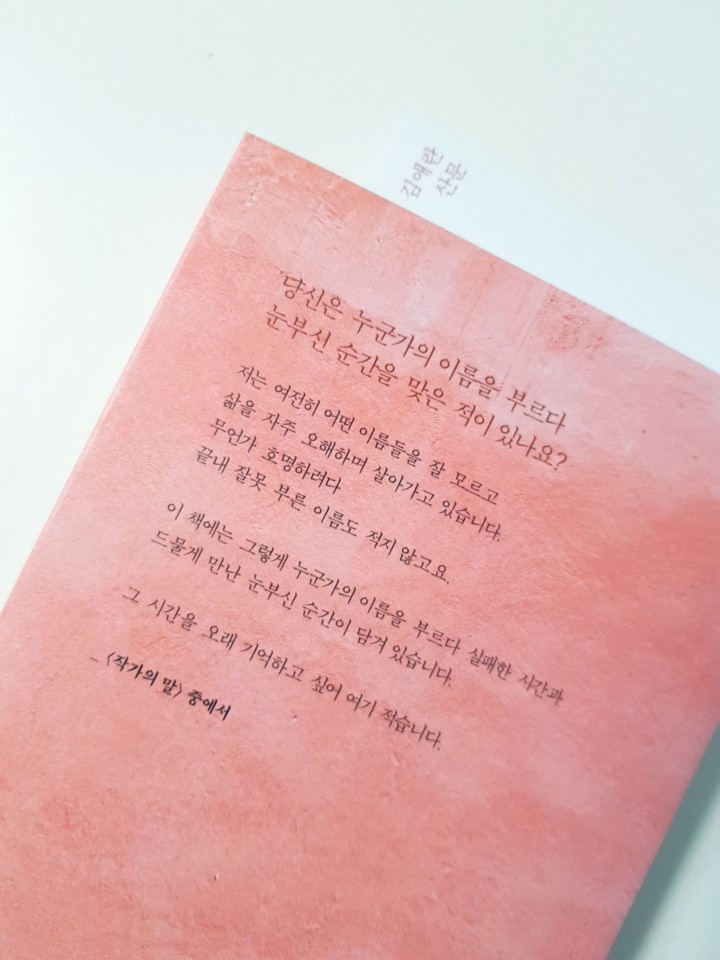 김애란
산문
당신은 누군가의 이름을 부르다
눈부신 순간을 맞은 적이 있나요?
저는 여전히 어떤 이름들을 잘 모르고
삶을 자주 오해하며 살아가고 있습니다.
무언가 호명하려다
끝내 잘못 부른 이름도 적지 않고요.
이 책에는 그렇게 누군가의 이름을 부르다 실패한 시간과
드물게 만난 눈부신 순간이 담겨 있습니다.
그 시간을 오래 기억하고 싶어 여기 적습니다.
– 〈작가의 말〉 중에서